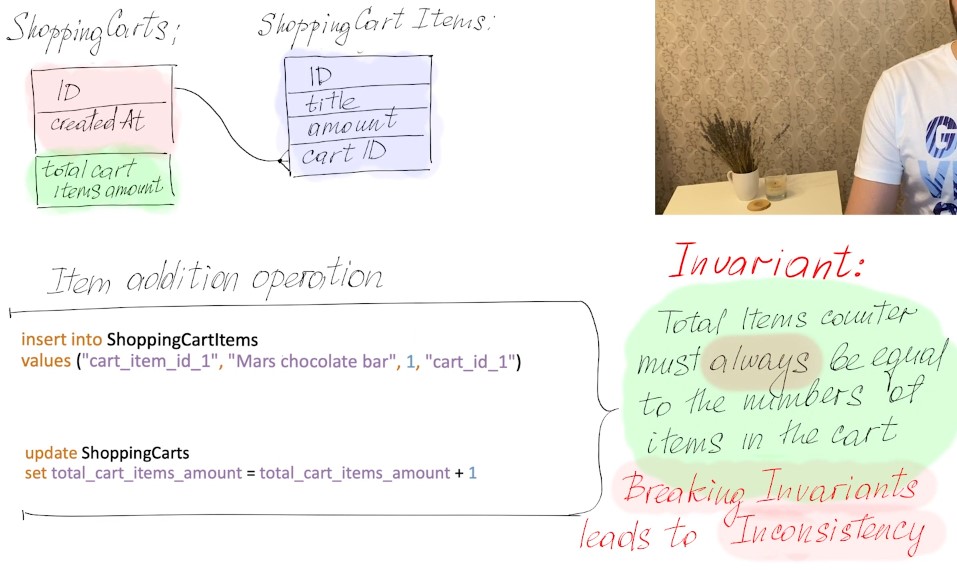 ShoppingCarts;
ShoppingCart Items:
ID
created At
total cart
items amount
ID
title
amount
cart ID
Item addition operation
insert into ShoppingCartItems
values ("cart_item_id_1", "Mars chocolate bar", 1, "cart_id_1")
update ShoppingCarts
set total_cart_items_amount = total_cart_items_amount + 1
Invariant:
Total Items counter
must always be equal
to the numbers of
items in the cart
Breaking Invariants
leads to Inconsistency